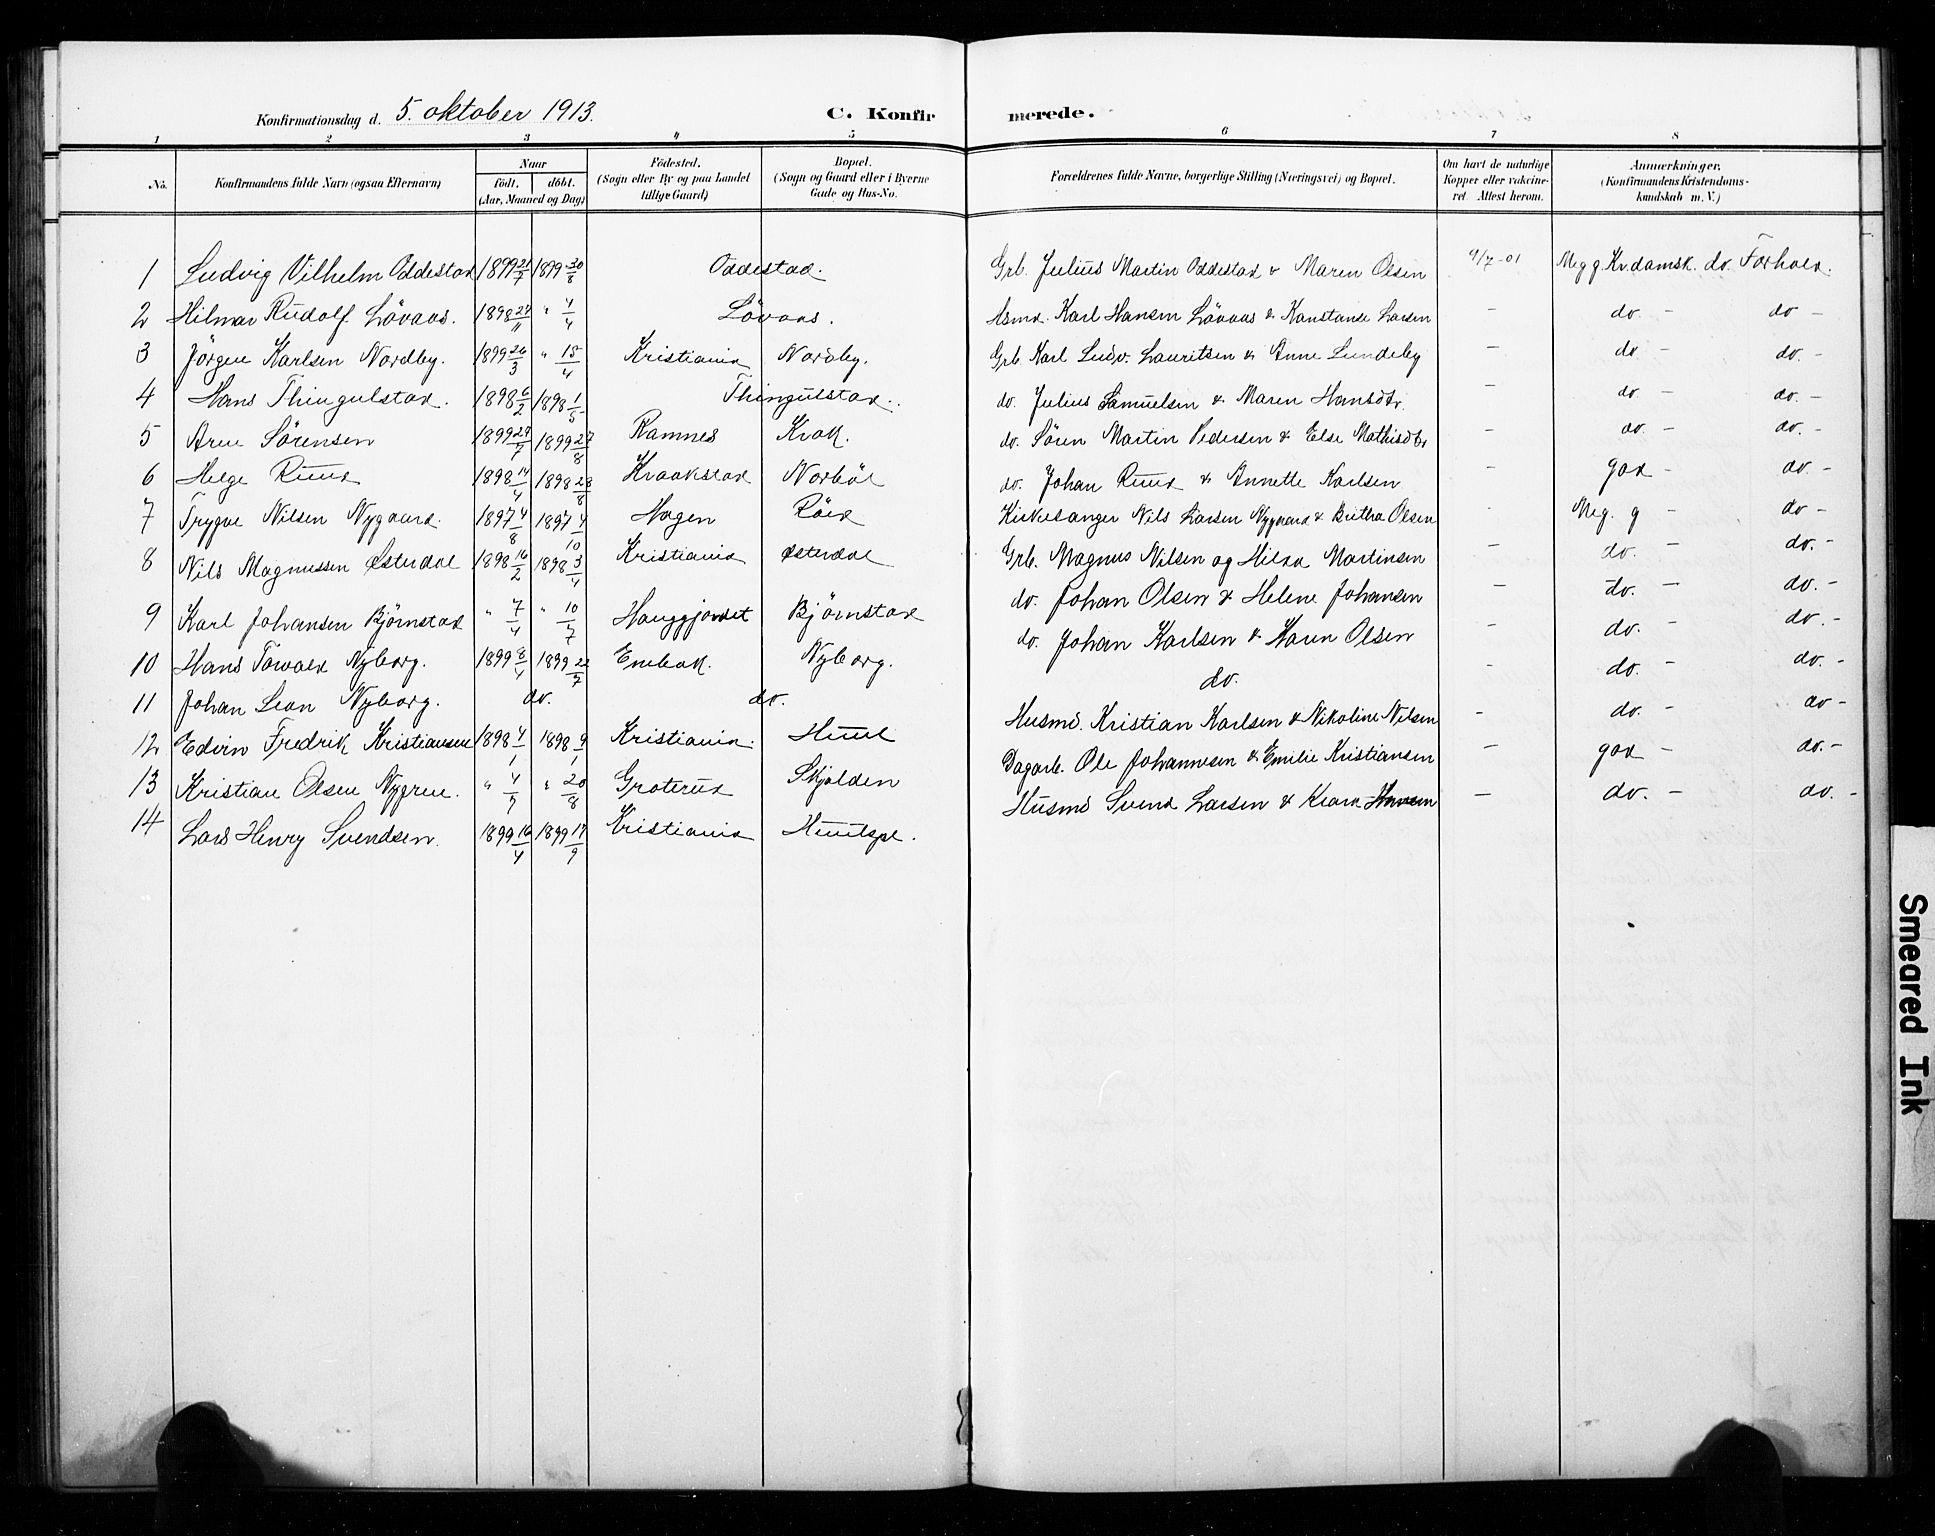 Konfirmationsdag d. 5. oktober 1913. C. Konfirmerede.
1 2 3 4 5 6 7 8
No. Konfirmandens fulde Navn (ogsaa Efternavn) Naar født. døbt. (Aar, Maaned og Dag) Fødested. (Sogn eller By og paa Landet tillige Gaard) Bopæl. (Sogn og Gaard eller i Byerne Gade og Hus-No. Forældrenes fulde Navne, borgerlige Stilling (Næringsvei) og Bopæl. Om havt de naturlige Kopper eller vakcineret. Attest herom. Anmærkninger. (Konfirmandens Kristendomskundskab m. V.)
1 Ludvig Vilhelm Oddestad 1899 21/7 1899 20/8 Oddestad. Grb. Julius Martin Oddestad & Maren Olsen 9/7-01 Meg g. Kr.damsk. do. Forhold.
2 Hilmar Rudolf Lövaas. 1898 27/11 " 4/4 Lövaas. Asmd. Karl Hansen Lövaas & Konstanse Larsen - do. - do -
3 Jörgen Karlsen Nordby. 1899 26/3 " 15/4 Kristiania Nordby. Grb. Karl Ludv. Lauritsen & Anne Lundeby - do - do. -
4 Hans Thingulstad. 1898 6/2 1898 1/5 Thingulstad. do. Julius Samuelsen & Maren Hansdtr. - do - do. -
5 Arne Sörensen 1899 27/7 1899 27/8 Ramnes Krok. do. Sören Martin Pedersen & Else Mathisdtr - do. - do. -
6 Helge Ruud 1898 14/4 1898 28/8 Kraakstad Norböl do. Johan Ruud & Annette Karlsen - god - do. -
7 Trygve Nilsen Nygaard. 1897 4/8 1897 4/10 Hogen Röed Kirkesanger Nils Larsen Nygaard & Britha Olsen - Meg. g - do -
8 Nils Magnussen Østerdal 1898 16/2 1898 3/4 Kristiania Østerdal Grb. Magnus Nilsen og Hilda Martinsen - do. - do. -
9 Karl Johansen Bjørnstad " 7/4 " 10/7 Hauggjordet Bjørnstad do. Johan Olsen & Helene Johansen - do. - do. -
10 Hans Torvald Nyborg. 1899 8/4 1899 22/7 Enebak. Nyborg. do. Johan Karlsen & Karen Olsen - do. - do. -
11 Johan Leon Nyborg. do. do. do. - do. - do. -
12 Edvin Fredrik Kristiansen 1898 4/1 1898 9/1 Kristiania. Huul Husmd. Kristian Karlsen & Nikoline Nilsen - do. - do -
13 Kristian Olsen Nygren. " 4/7 " 20/8 Groterud Skjolden Dagarb. Ole Johannesen & Emilie Kristiansen - god - do. -
14 Lars Henry Svendsen. 1899 16/4 1899 17/9 Kristiania Huulspl. Husmd Svend Larsen & Klara - do. - do. -
Smeared Ink